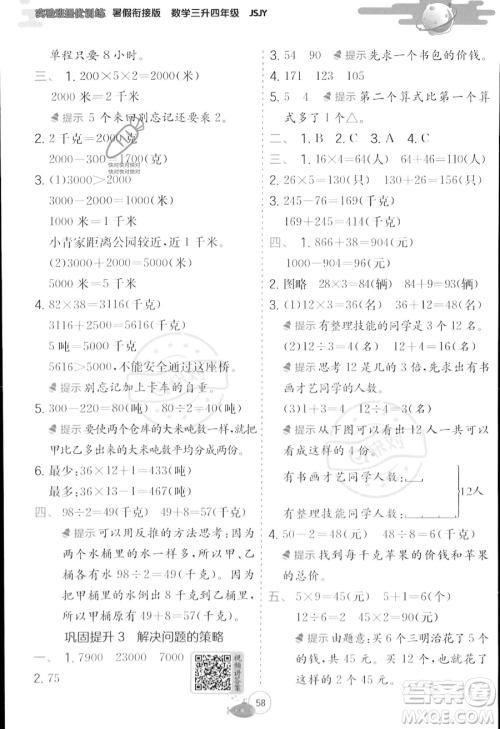 实验班提优训练 暑假衔接版 数学三升四年级 JSJY
单程只要 50 分钟。
三、1. 200×5×2=2000(米)
2000 米=2 千米
提示 5 个来回别忘记还要乘 2。
2. 2 千克=2000 克
2000-300=1700(克)
3. (1)3000>2000
3000-2000=1000(米)
1000 米=1 千米
小青家距离公园较近,近 1 千米。
(2)3000+2000=5000(米)
5000 米=5 千米
4. 82×38=3116(千克)
3116+2500=5616(千克)
5 吨=5000 千克
5616>5000,不能安全通过这座桥。
提示 别忘记加上卡车的自重。
5. 300-220=80(吨) 80÷2=40(吨)
提示 要使两个仓库的大米吨数同样多,就把甲比乙多的大米吨数平均分成 2 份。
6. 最少:36×12+1=433(吨)
最多:36×13=468(吨)
四、98÷2=49(千克) 49+8=57(千克)
提示 可以用反推的方法思考。现在两个水桶里的水一样多,所以甲、乙桶各有 98÷2=49(千克)。原来甲桶里有水 49+8=57(千克)。
巩固提升 3 解决问题的策略
一、1. 7900 23000 7000
2. 75
视频讲答案
58
提示 先求出一个书包的价钱。
4. 171 123 105
5. 5 4 提示 第二个算式比第一个算式多了 1 个△。
二、1. B 2. B 3. A 4. C
三、1. 16×4=64(人) 64+96=160(人)
2. 26×5=130(只) 130+26=156(只)
3. 245-76=169(千克)
169+245=414(千克)
四、1. 866+38=904(元)
904+866=1770(元)
2. 图略 28×3=84(辆) 84+28=112(辆)
3. (1)12×3=36(名) 36-12=24(名)
提示 有整理技能的同学有 3 个 12 名。
(2)12÷4=3(名) 3×3=9(名)
提示 思考 12 名里有几个有书画才艺同学的人数。
(3)12÷(1+3)=3(名) 3×3=9(名)
提示 从下图可以看出 12 人一共可以看成这样的 4 份。
有书画才艺同学人数:
有整理技能的同学人数:
12人
4. 50-2=48(元) 48÷8=6(元)
提示 找到每千克苹果的价钱和买苹果的总价。
五、5×2=10(元) 22-10=12(元)
12÷6=2(元) 2+5=7(元)
提示 由题意:买 6 个三明治花了 5 个